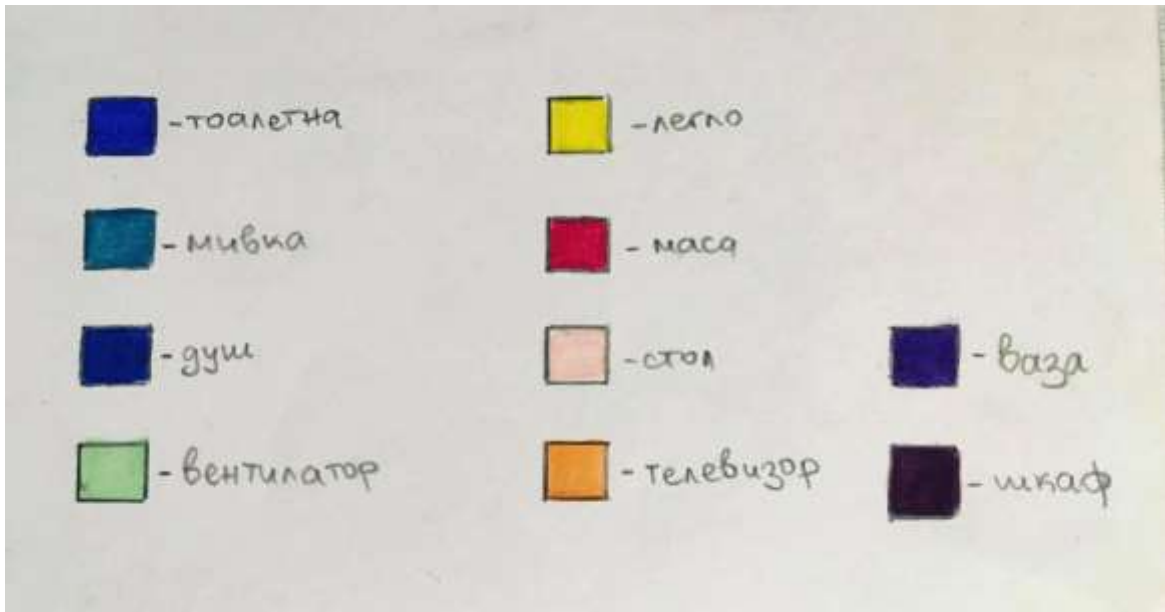 -тоалетна
-мивка
-душ
-вентилатор
-легло
-маса
-стол
-телевизор
-ваза
-шкаф